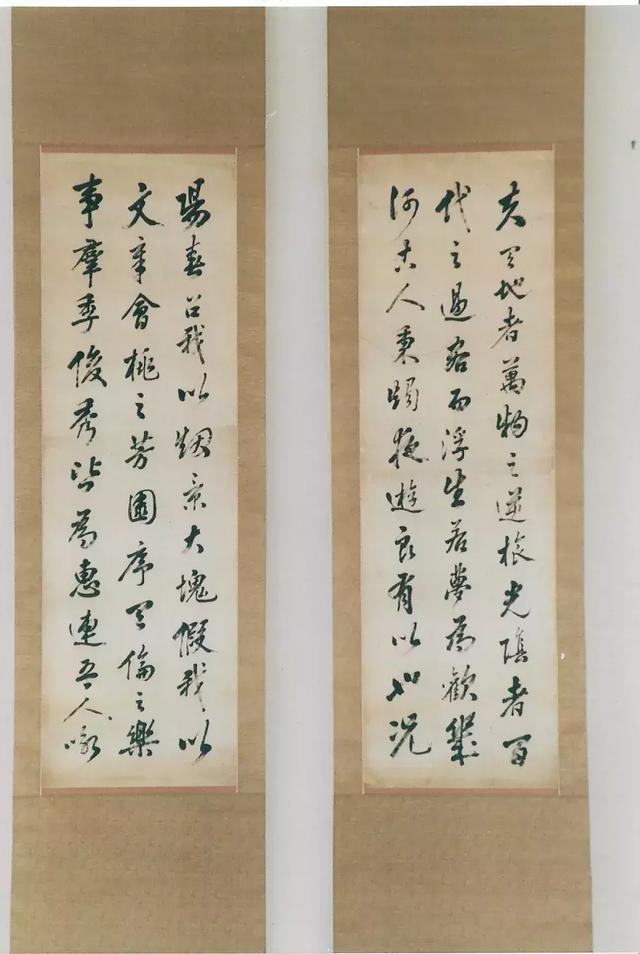 夫天地者萬物之逆旅光陰者百
代之過客而浮生若夢為歡幾
何古人秉燭夜遊良有以也況
陽春召我以烟景大塊假我以
文章會桃之芳園序天倫之樂
事羣季俊秀皆為惠連吾人詠